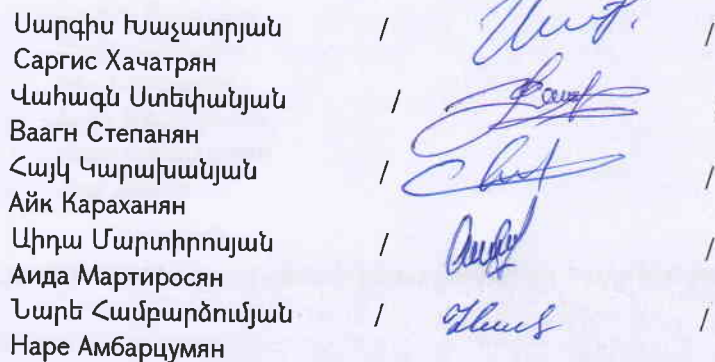 Սարգիս Խաչատրյան / /
Саргис Хачатрян
Վահագն Ստեփանյան /
Ваагн Степанян
Հայկ Կարախանյան / /
Айк Караханян
Աիդա Մարտիրոսյան / /
Аида Мартиросян
Նարե Համբարձումյան / /
Наре Амбарцумян